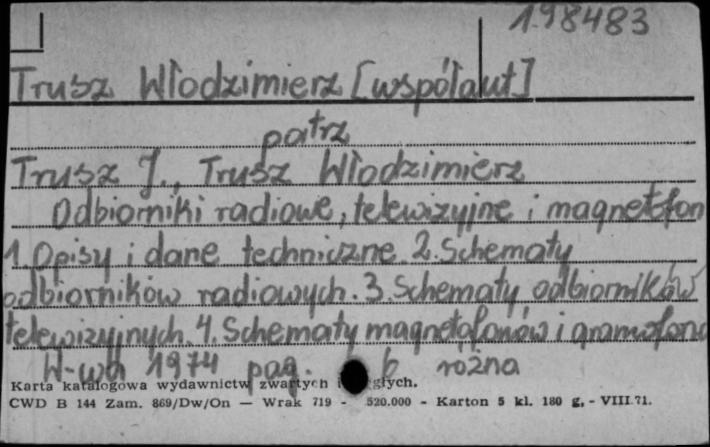 1.98483
Trusz Włodzimierz [współaut]
patrz
Trusz J., Trusz Włodzimierz
Odbiorniki radiowe, telewizyjne i magnetofon
1. Opisy i dane techniczne. 2. Schematy
odbiorników radiowych. 3. Schematy odbiorników
telewizyjnych. 4. Schematy magnetofonów i gramofono
W-wa 1974 pag. różna
Karta katalogowa wydawnictw zwartych i głych.
CWD B 144 Zam. 869/Dw/On — Wrak 719 - 520.000 - Karton 5 kl. 180 g. - VIII.71.